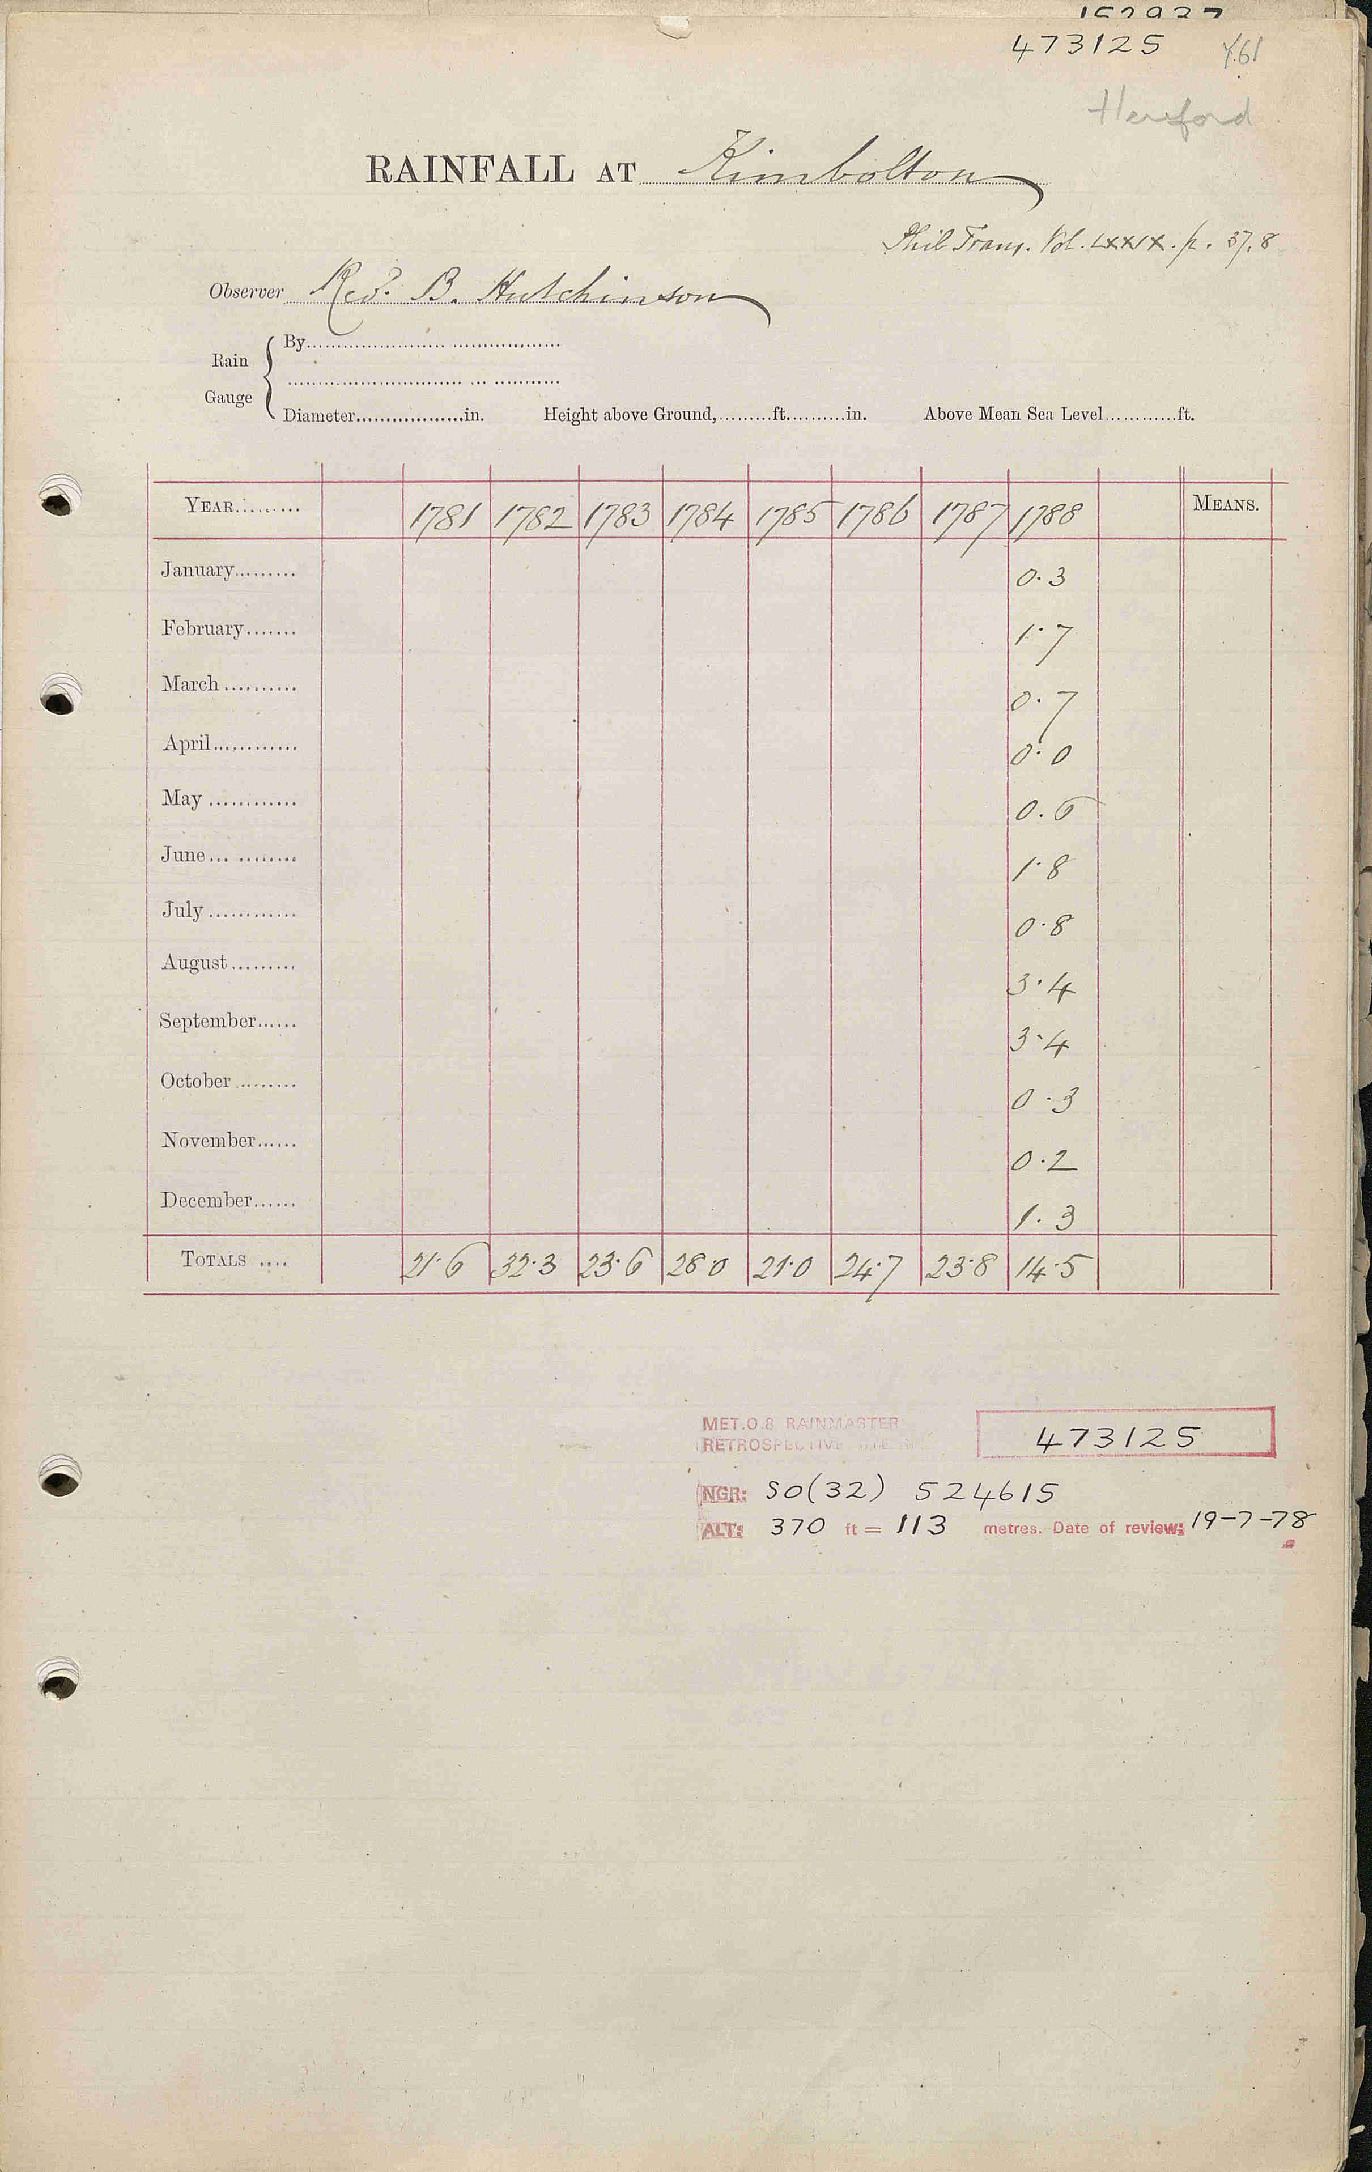 473125 Y.61
Hereford
RAINFALL AT Kimbolton
Phil Trans. Vol. LXXIX. p. 37, 8
Observer Rev. B. Hutchinson
Rain Gauge { By
Diameter in. Height above Ground, ft. in. Above Mean Sea Level ft.
YEAR 1781 1782 1783 1784 1785 1786 1787 1788 MEANS.
January 0.3
February 1.7
March 0.7
April 0.0
May 0.6
June 1.8
July 0.8
August 3.4
September 3.4
October 0.3
November 0.2
December 1.3
TOTALS 21.6 32.3 23.6 28.0 21.0 24.7 23.8 14.5
MET.O.8 RAINMASTER
RETROSPECTIVE 473125
NGR: SO(32) 524615
ALT: 370 ft = 113 metres. Date of review: 19-7-78